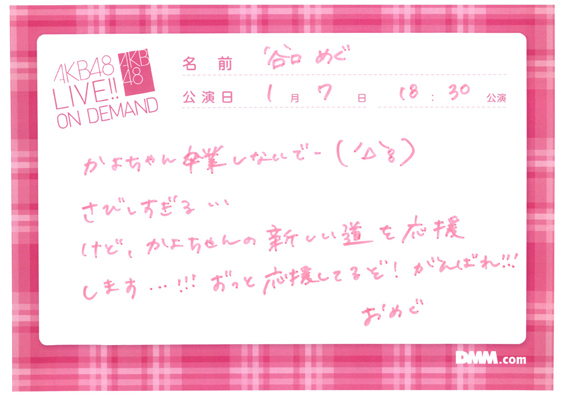 AKB48
LIVE!!
ON DEMAND
AKB
48
名前 谷口 めぐ
公演日 1月 7日 18:30 公演
かよちゃん卒業しないでー(´△`;)
さびしすぎる…
けど、かよちゃんの新しい道を応援
します…!!! ずっと応援してるぞ! がんばれ!!!
おめぐ
DMM.com